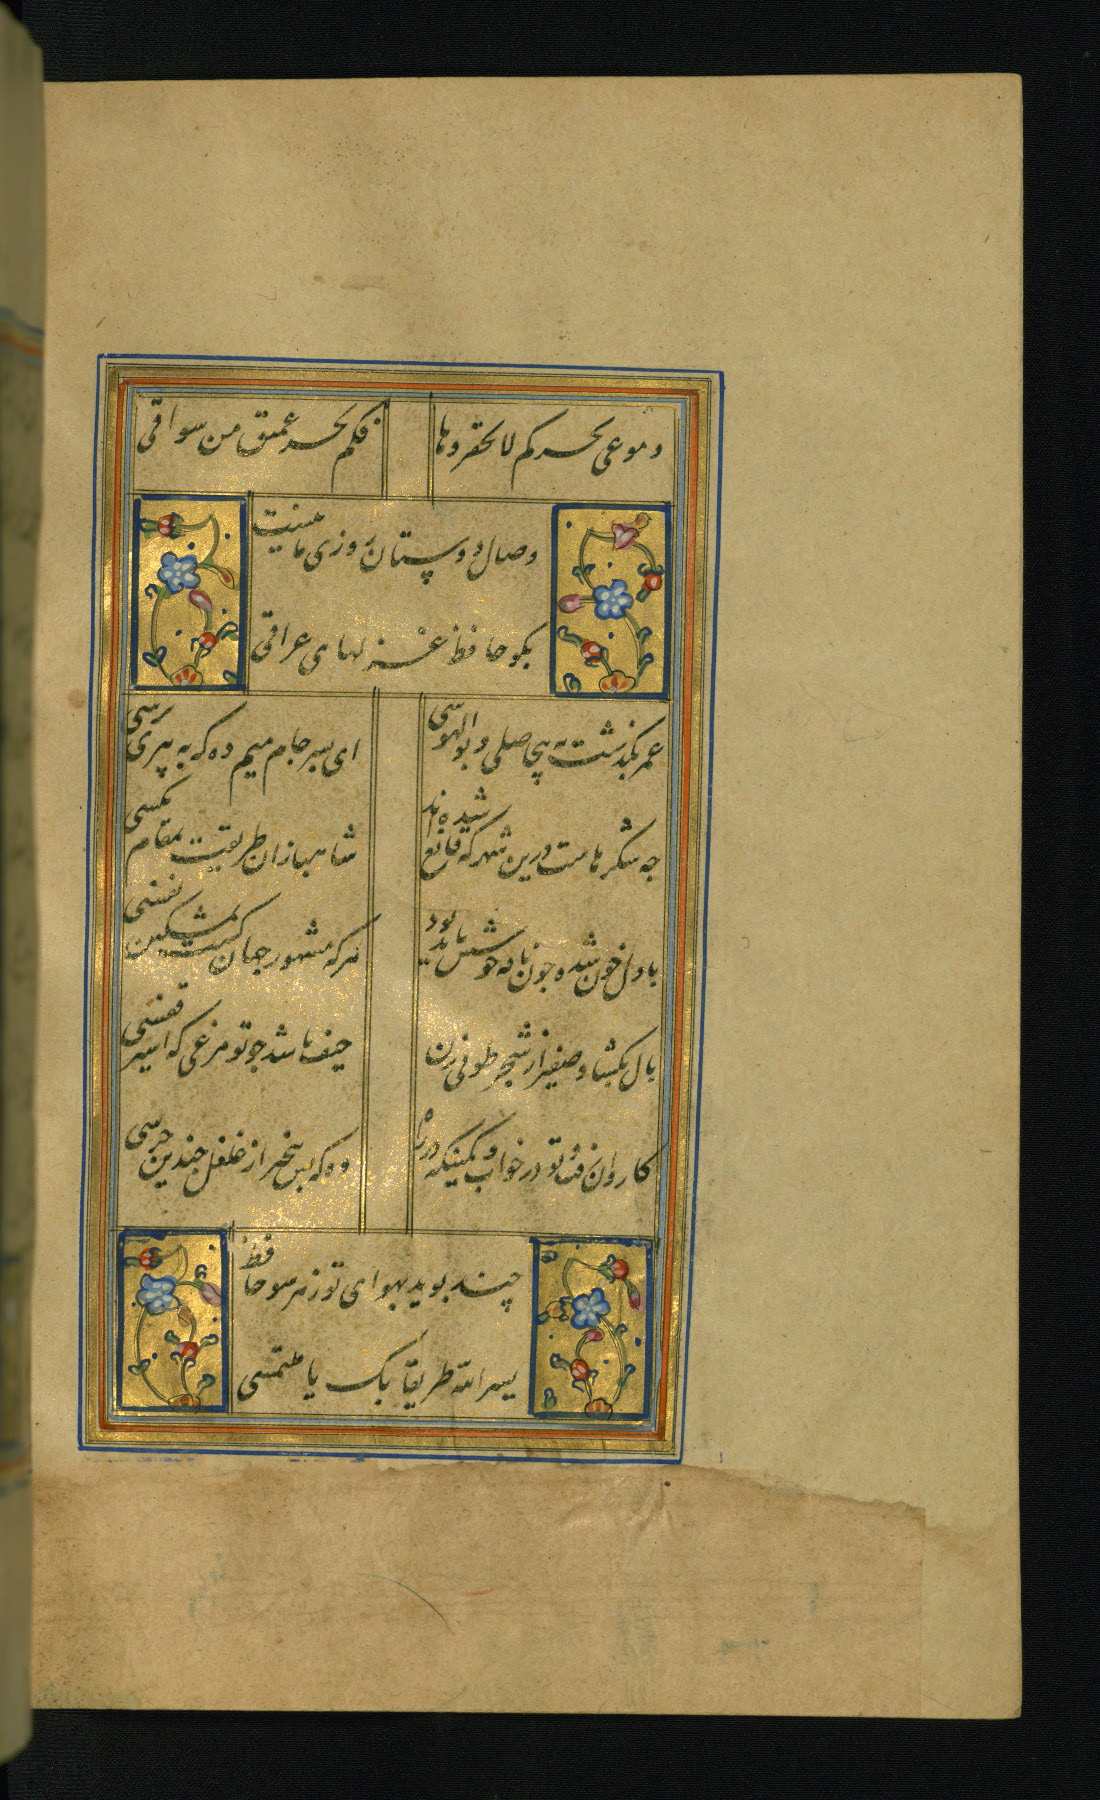 دموعی بحرکم لا تحقروها
فکم بحر عمیق من سواقی
وصال دوستان روزی ما نیست
بکو حافظ غزلهای عراقی
عمر بکذشت به بیحاصلی و بوالهوسی
ای پسر جام میم ده که به پیری برسی
چه شکرهاست درین شهر که قانع شده‌اند
شاهبازان طریقت بمقام مکسی
با دل خون شده چون نافه خوشش باید بود
هرکه مشهور جهان کشت بمشکین نفسی
بال بکشا و صفیر از شجر طوبی زن
حیف باشد چو تو مرغی که اسیر قفسی
کاروان رفت و تو در خواب و کمینکه در راه
وه که بس بیخبر از غلغل چندین جرسی
چند بوید بهوای تو ز هر سو حافظ
یسر الله طریقا بک یا ملتمسی